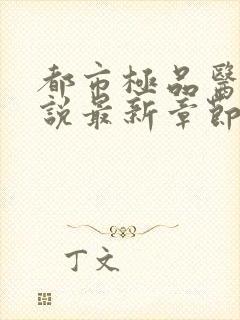 都市極品醫
說最新章節
丁文